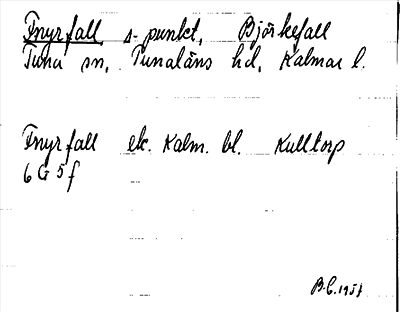 Fnyrfall s-punkt, Björkefall
Tuna sn, Tunaläns hd, Kalmar l.
Fnyrfall ek. Kalm. bl. Kulltorp
6 G 5 f
B.C. 1951